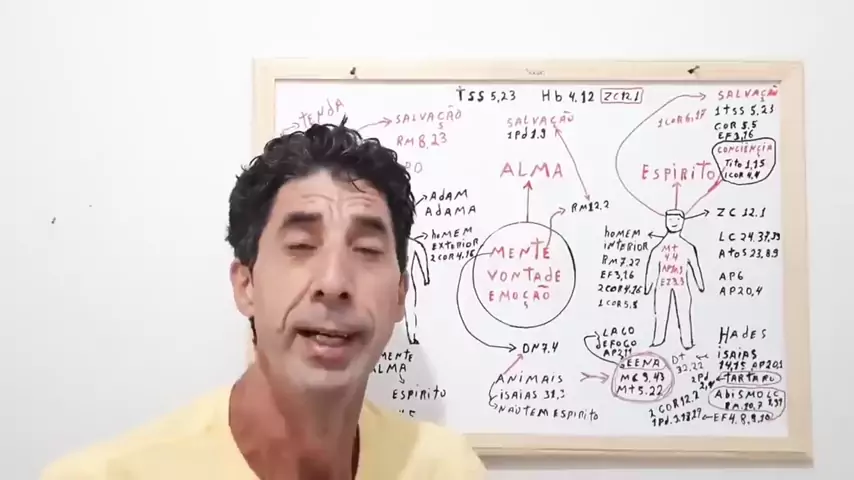 1 TSS 5,23 Hb 4.12 ZC 12.1
TENDA
SALVAÇÃO
RM 8,23
ADAM
ADAMA
hOMEM
EXTERIOR
2 COR 4,16
MENTE
ALMA
ESPIRITO
SALVAÇÃO
1 Pd 1.9
ALMA
RM 12.2
MENTE
VONTADE
EMOÇÃO
DN 7.4
ANIMAIS
ISAIAS 31,3
NÃO TEM ESPIRITO
SALVAÇÃO
1 TSS 5,23
COR 5.5
EF 3,16
1 COR 6,17
CONCIÊNCIA
Tito 1,15
1 COR 4.4
ESPIRITO
ZC 12.1
hOMEM
INTERIOR
RM 7.22
EF 3,16
2 COR 4.16
1 COR 5,5
Mt
4.4
LC 24.37,39
Atos 23,8.9
AP 6
AP 20,4
LAGO
DE FOGO
GEENA
MC 9.43
Mt 5.22
Dt
32.22
HADES
ISAIAS
14,15 AP 20,1
2 Pd
2,4
TARTARO
ABISMO LC
RM 10,7
2 COR 12.2
EF 4.8,9,10